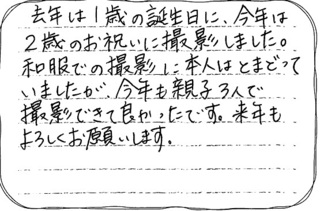 去年は1歳の誕生日に、今年は
2歳のお祝いに撮影しました。
和服での撮影に本人はとまどって
いましたが、今年も親子3人で
撮影できて良かったです。来年も
よろしくお願いします。